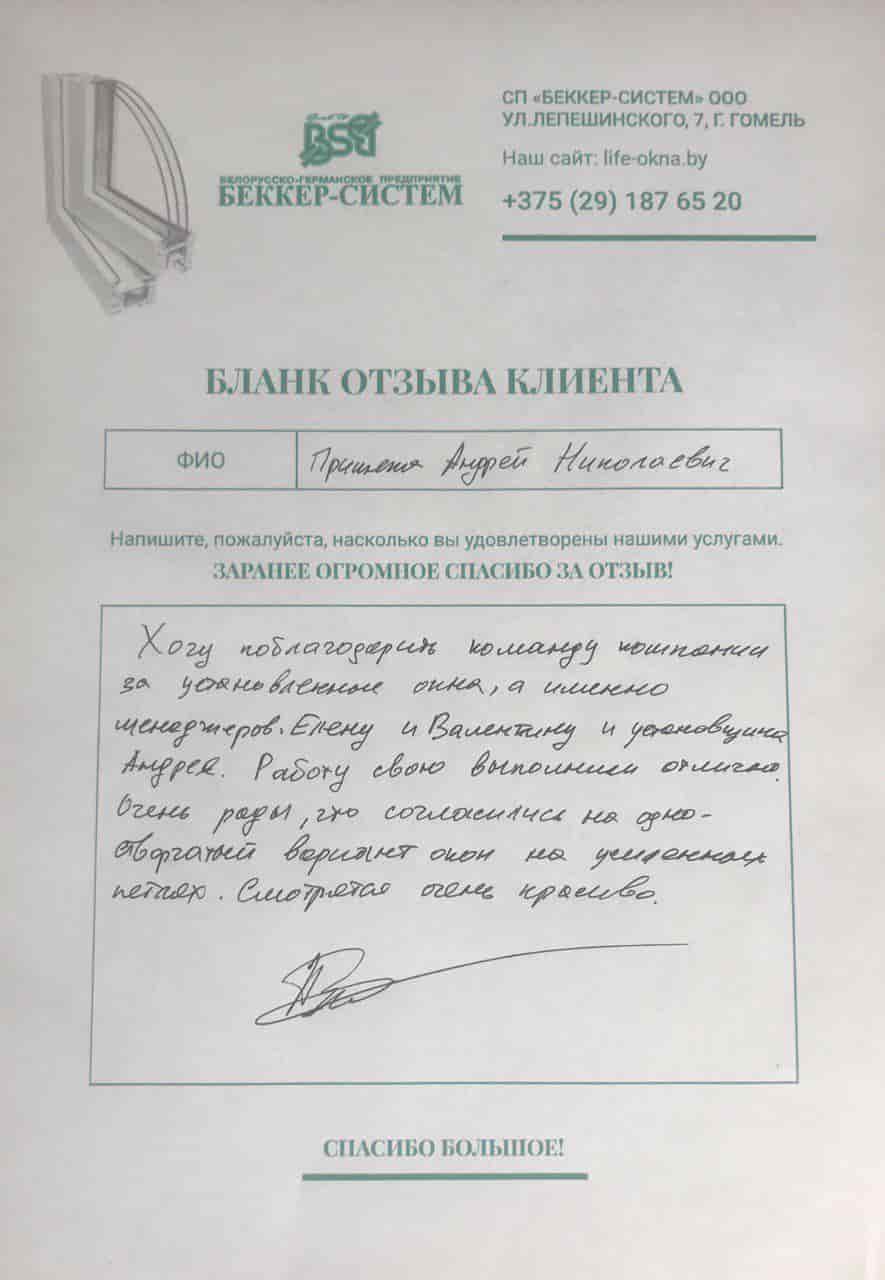 BSG
БЕЛОРУССКО-ГЕРМАНСКОЕ ПРЕДПРИЯТИЕ
БЕККЕР-СИСТЕМ
СП «БЕККЕР-СИСТЕМ» ООО
УЛ.ЛЕПЕШИНСКОГО, 7, Г. ГОМЕЛЬ
Наш сайт: life-okna.by
+375 (29) 187 65 20
БЛАНК ОТЗЫВА КЛИЕНТА
ФИО
Андрей Николаевич
Напишите, пожалуйста, насколько вы удовлетворены нашими услугами.
ЗАРАНЕЕ ОГРОМНОЕ СПАСИБО ЗА ОТЗЫВ!
Хочу поблагодарить команду компании
за установленные окна, а именно
менеджеров. Елену и Валентину и установщика
Андрея. Работу свою выполнили отлично.
Очень рады, что согласились на одно-
створчатый вариант окон на усиленных
петлях. Смотрятся очень красиво.
СПАСИБО БОЛЬШОЕ!